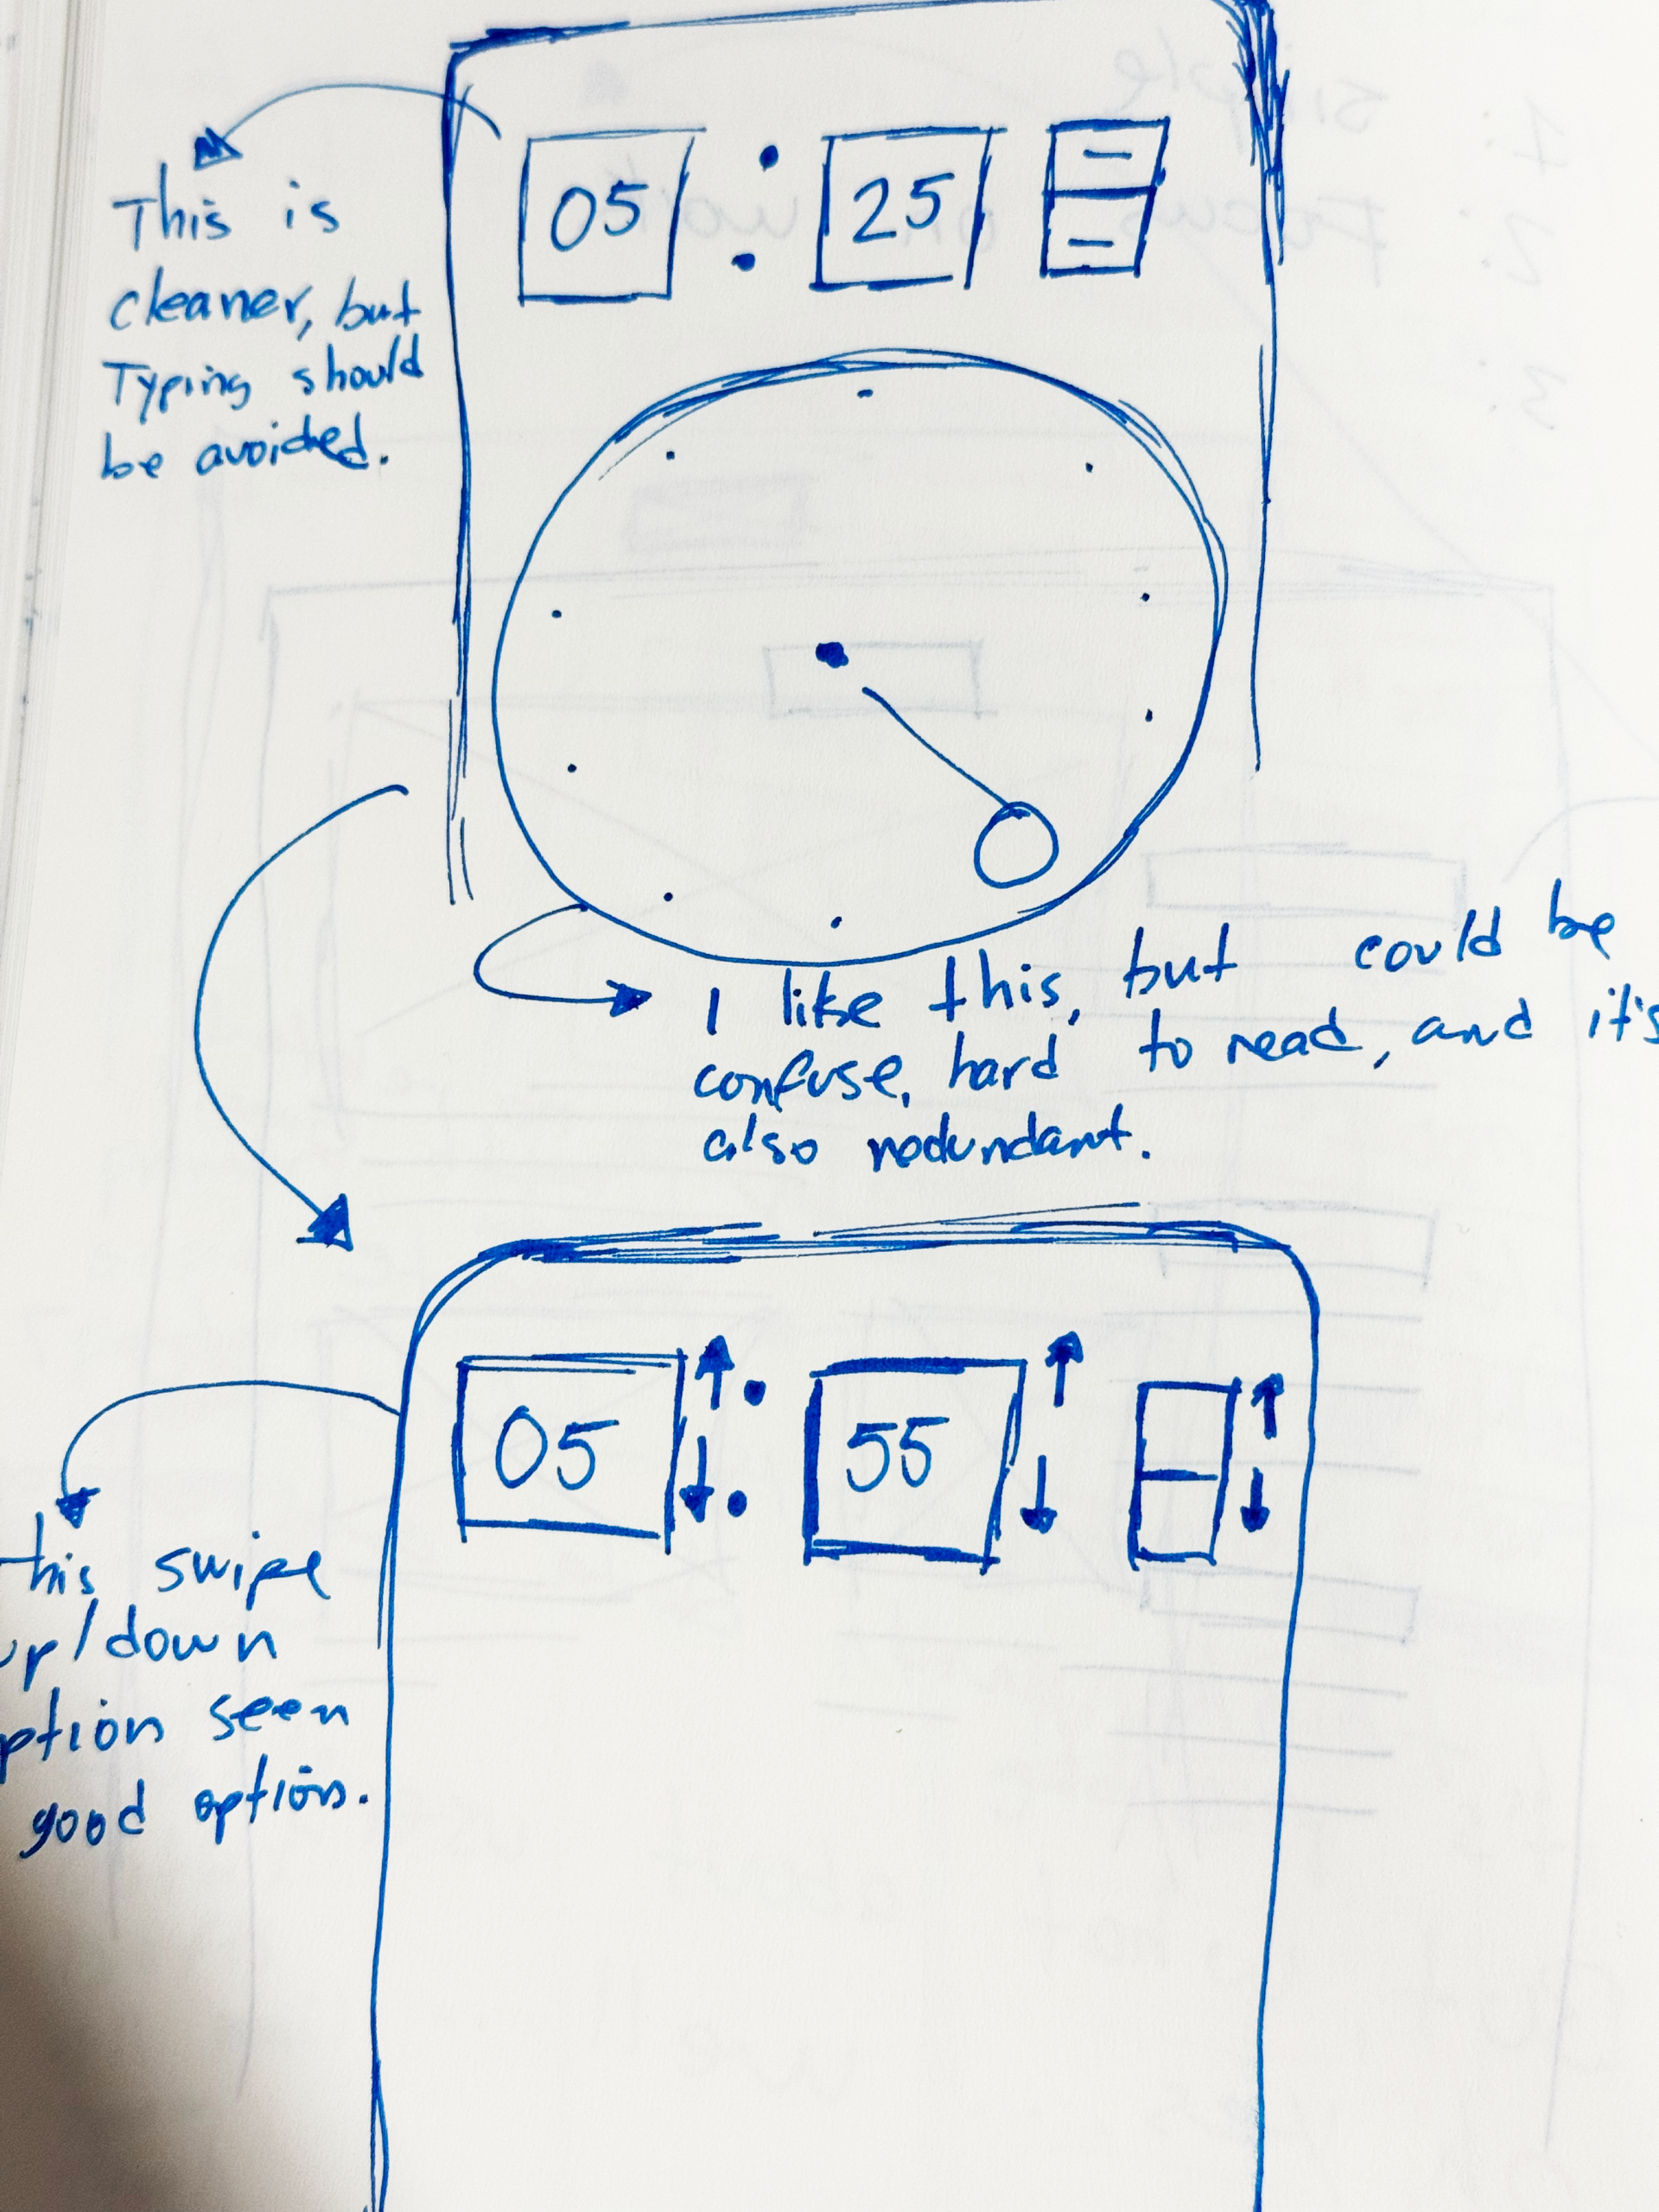 05 : 25
This is
cleaner, but
Typing should
be avoided.
I like this, but could be
confuse, hard to read, and it's
also redundant.
05 : 55
this swipe
up/down
option seen
good option.